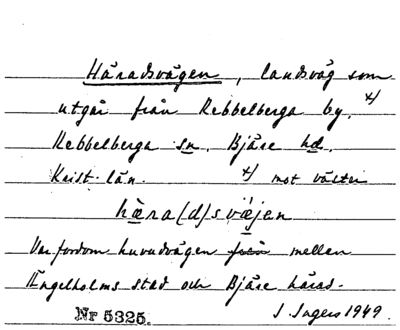 Häradsvägen, landsväg som
utgår från Rebbelberga by. x)
Rebbelberga sn. Bjäre hd.
Krist. län. x) mot väster
hæra(d)svæjen
Var fordom huvudvägen från mellen
Engelholms stad och Bjäre härad.
Nr 5325. J. Ingers 1949.